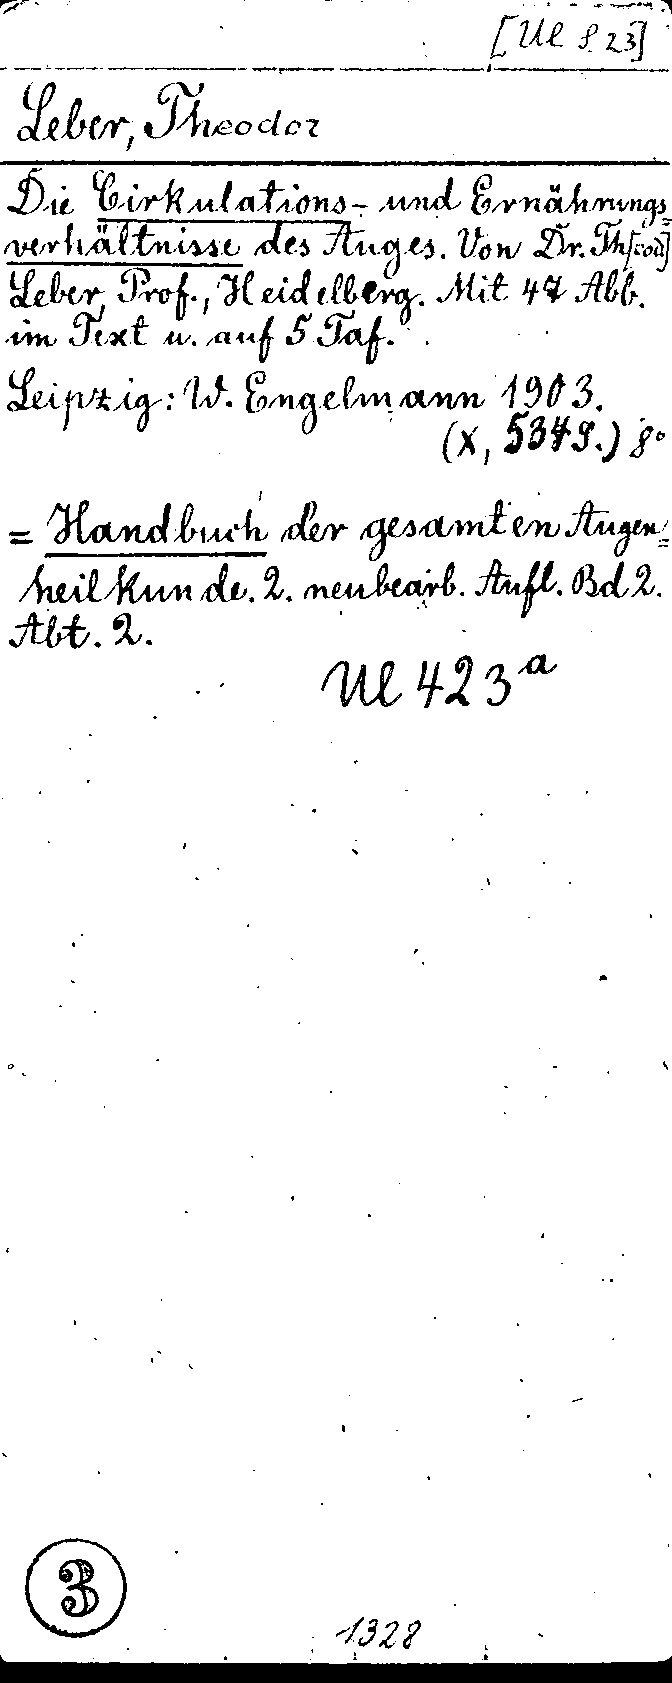 [Ul 823]
Leber, Theodor
Die Cirkulations- und Ernährungs=
verhältnisse des Auges. Von Dr. Th[eod]
Leber, Prof., Heidelberg. Mit 47 Abb.
im Text u. auf 5 Taf.
Leipzig: W. Engelmann 1903.
(X, 534 S.) 8°
= Handbuch der gesamten Augen=
heilkunde. 2. neubearb. Aufl. Bd 2.
Abt. 2.
Ul 423a
3
1328